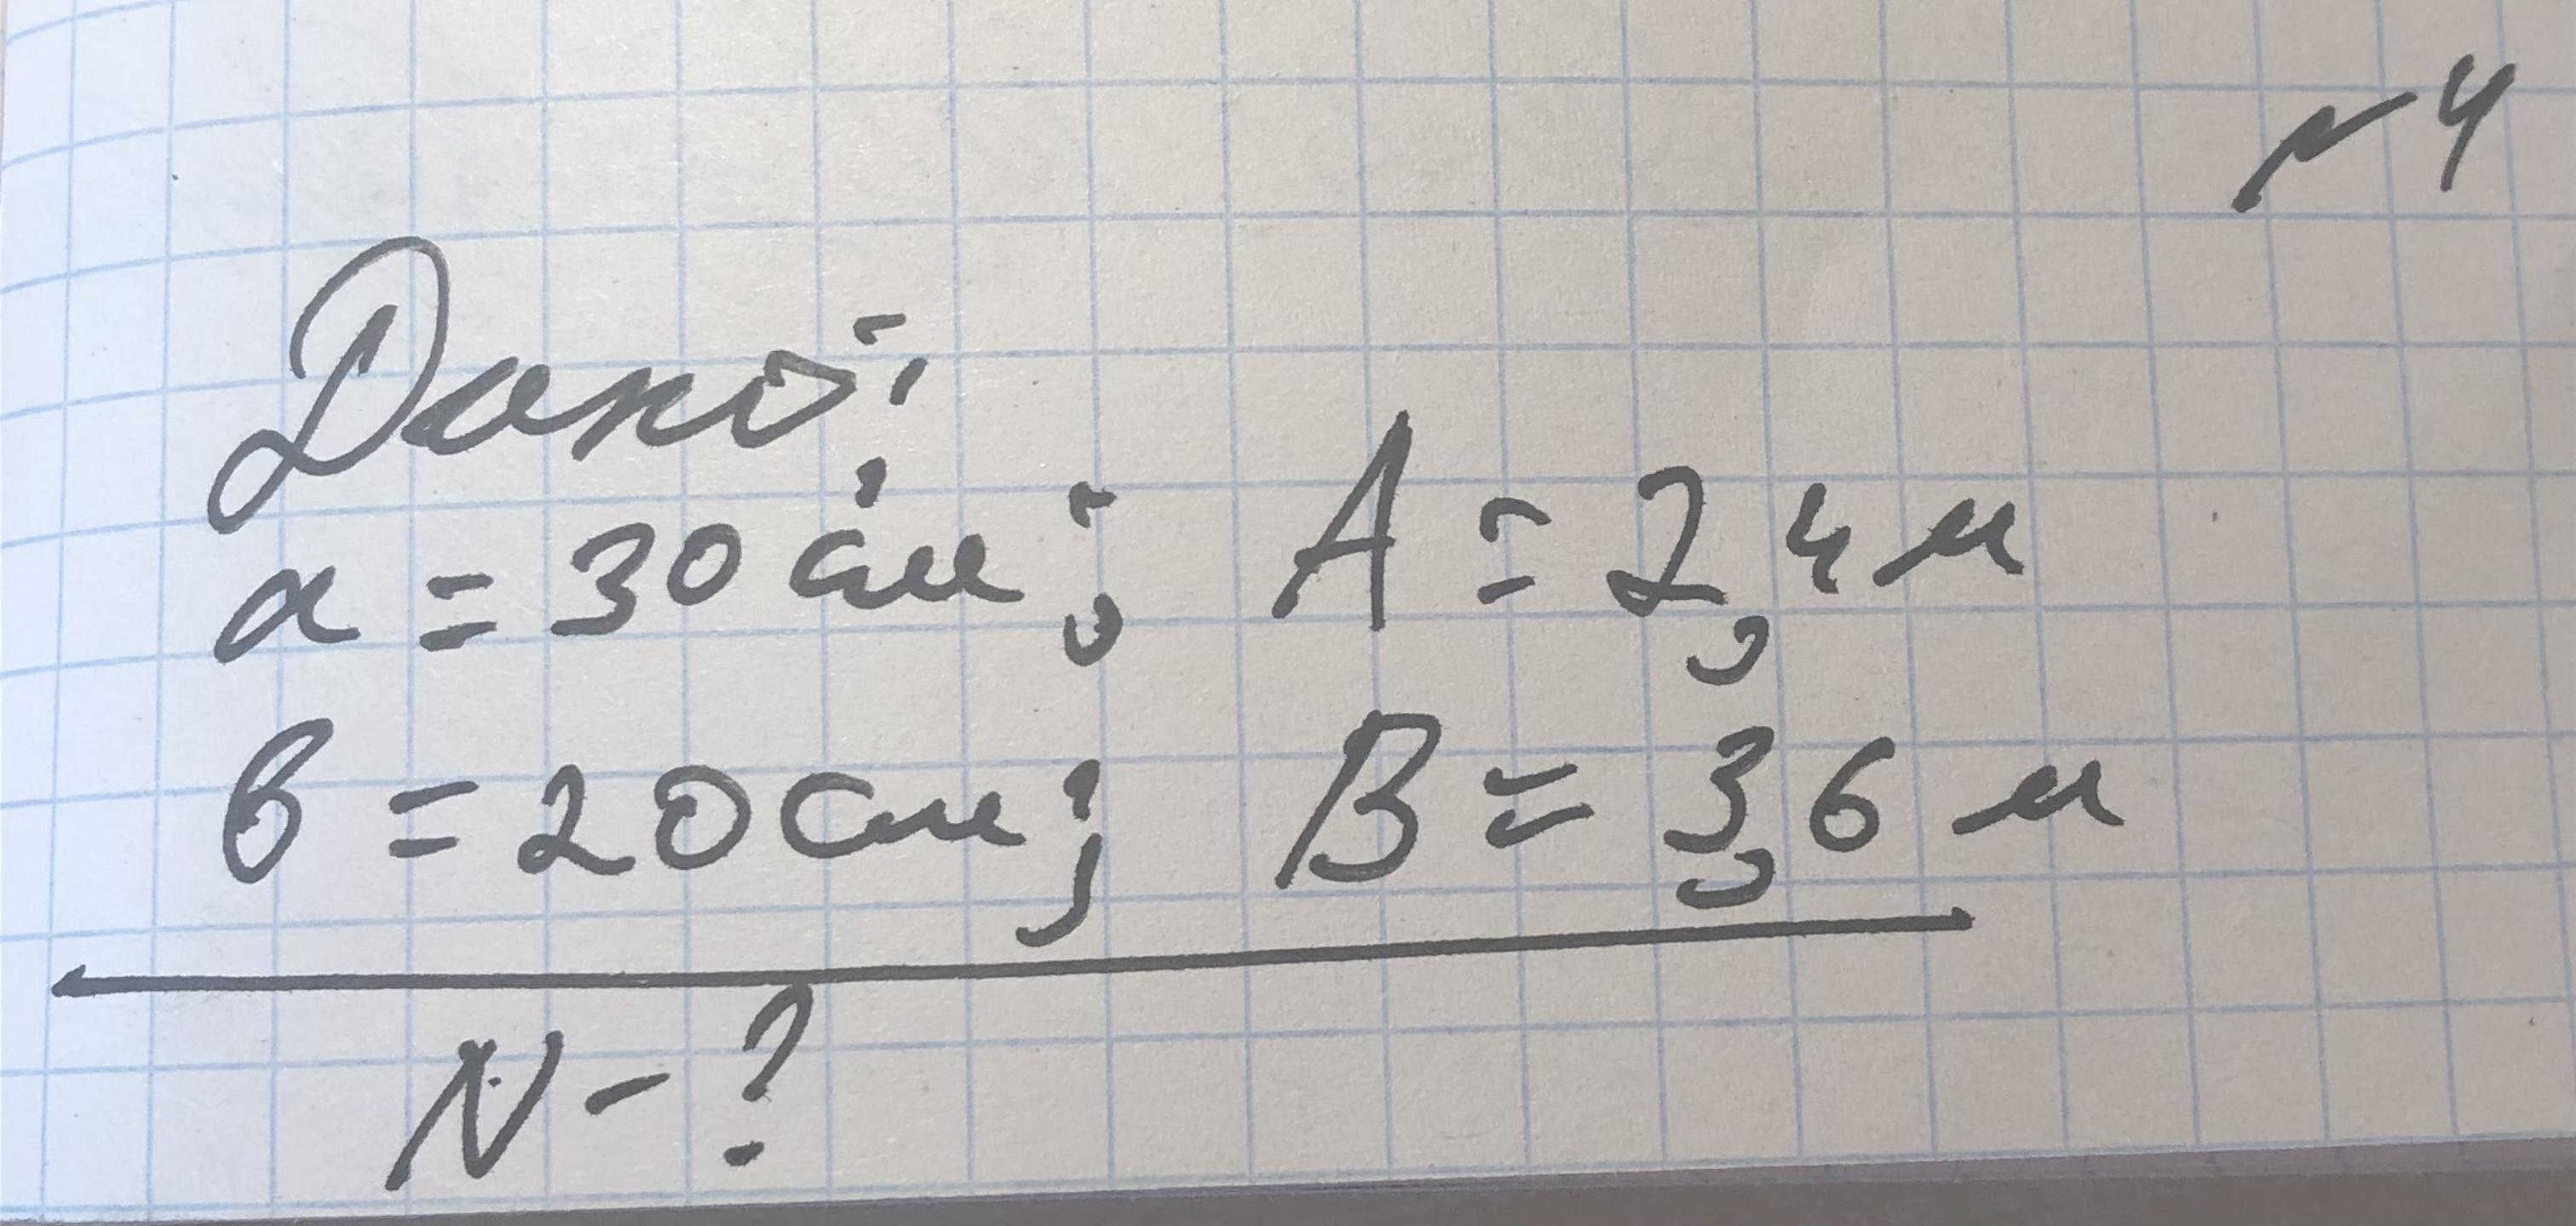 №4
Дано:
a = 30 см; A = 2,4 м
в = 20 см; B = 3,6 м
N - ?